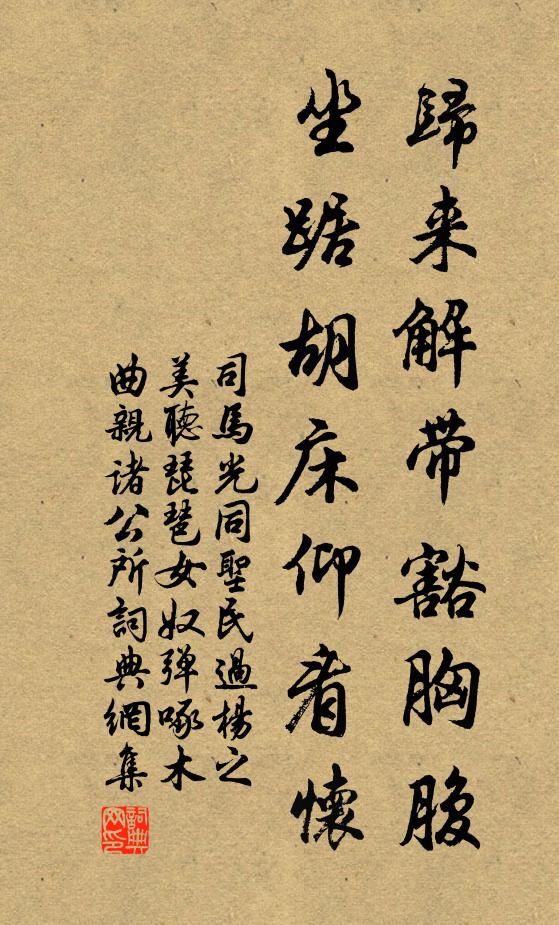 歸来解带豁胸腹
坐踞胡床仰看懷
司馬光同聖民過楊之
美聽琵琶女奴弹啄木
曲親诸公所詞典網集
詞典
网印